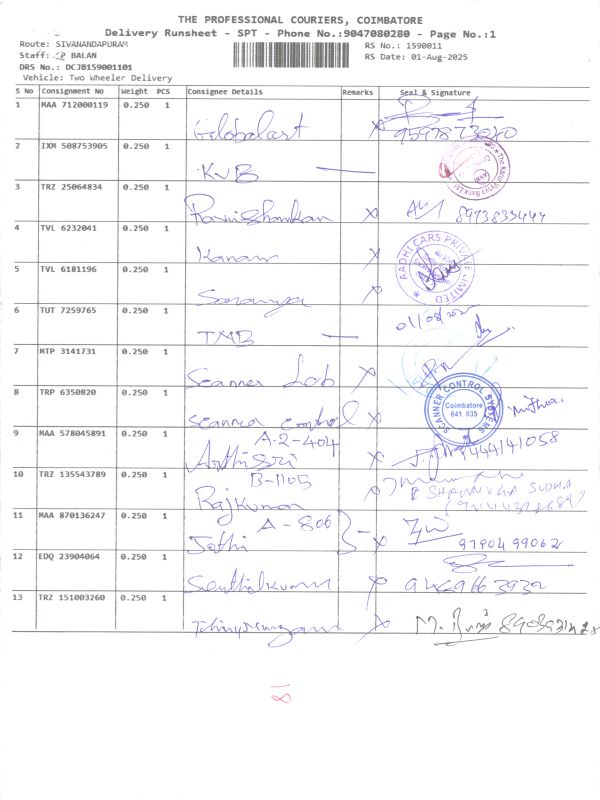 THE PROFESSIONAL COURIERS, COIMBATORE
Delivery Runsheet - SPT - Phone No.:9047080280 - Page No.:1
Route: SIVANANDAPURAM
RS No.: 1590011
Staff: SP BALAN
RS Date: 01-Aug-2025
DRS No.: DCJB159001101
Vehicle: Two Wheeler Delivery
S No Consignment No Weight PCS Consignee Details Remarks Seal & Signature
1 MAA 712000119 0.250 1
Globalart
2 IXM 508753905 0.250 1
KVB
3 TRZ 25064834 0.250 1
Ravishankar 8973833444
4 TVL 6232041 0.250 1
Kanan
AADHI CARS PRIVATE LIMITED
5 TVL 6181196 0.250 1
Saranya
6 TUT 7259765 0.250 1
TMB
7 MTP 3141731 0.250 1
Scanner Lab
8 TRP 6350820 0.250 1
Scanner Control
SCANNER CONTROL SYSTEMS
Coimbatore
641 035
9 MAA 578045891 0.250 1
A-2-404
Arthi Sri
10 TRZ 135543789 0.250 1
B-1105
Rajkumar
11 MAA 870136247 0.250 1
A-806
Sathi 9790499062
12 EDQ 23904064 0.250 1
Senthilkumar
13 TRZ 151003260 0.250 1